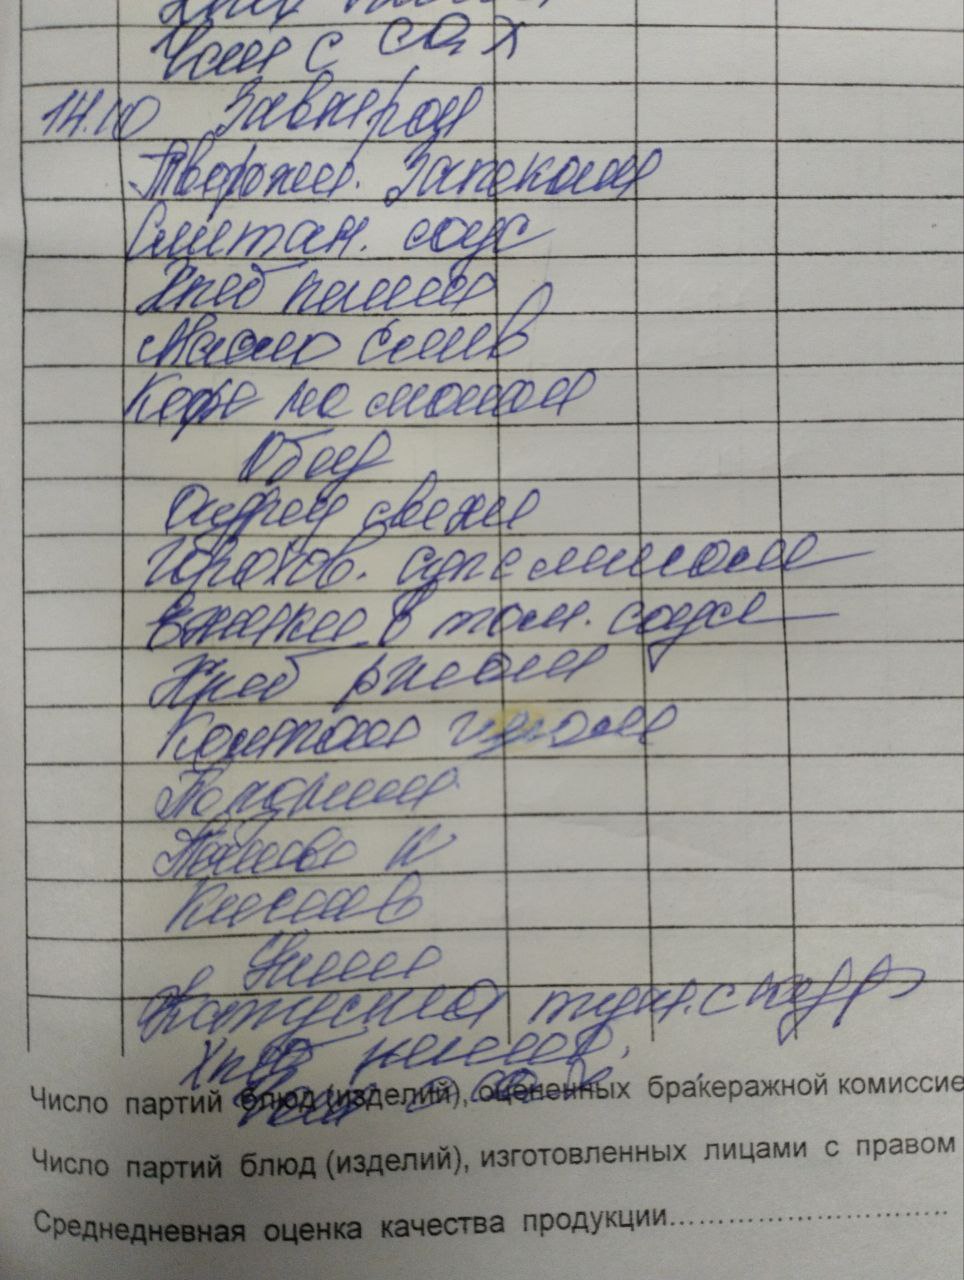 Чай с сах
14.10 Завтрак
Творожн. Запекан
Сметан. соус
Хлеб пшен
Масло слив
Кофе на молок
Обед
Огурец свежи
Горохов. суп с мясом
в том. соусе
Хлеб ржан
Компот
Полдник
К
Ужин
Капуста туш. с кур
Хлеб пшен.
Чай с сах
Число партий блюд (изделий), оцененных бракеражной комиссие
Число партий блюд (изделий), изготовленных лицами с правом
Среднедневная оценка качества продукции..............................